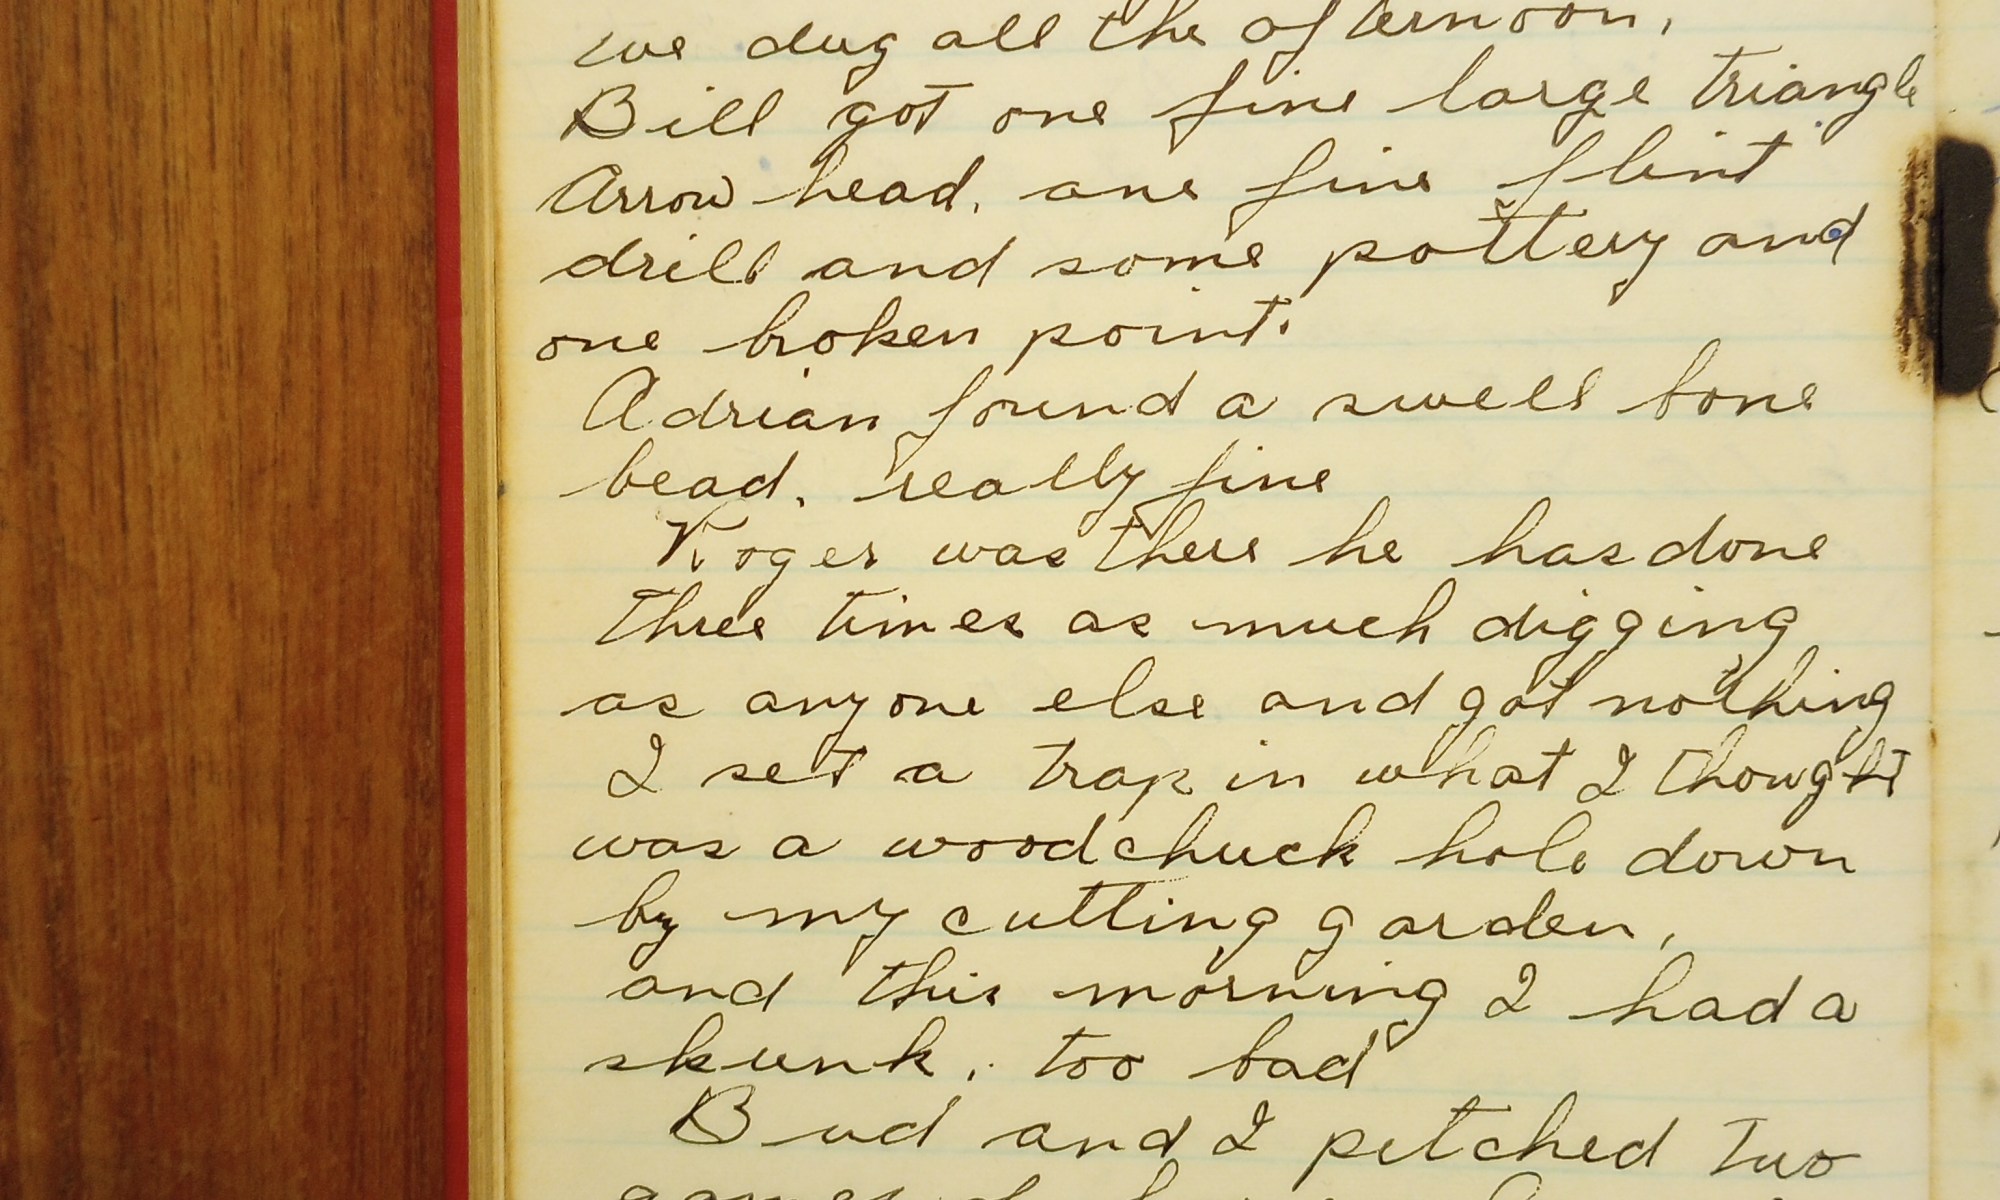 we dug all the afternoon,
Bill got one fine large triangle
Arrow head. one fine flint
drill and some pottery and
one broken point.
Adrian found a swell bone
bead. really fine
Roger was there he has done
three times as much digging
as anyone else and got nothing
I set a trap in what I thought
was a woodchuck hole down
by my cutting garden,
and this morning I had a
skunk. too bad
Bud and I pitched two
games of